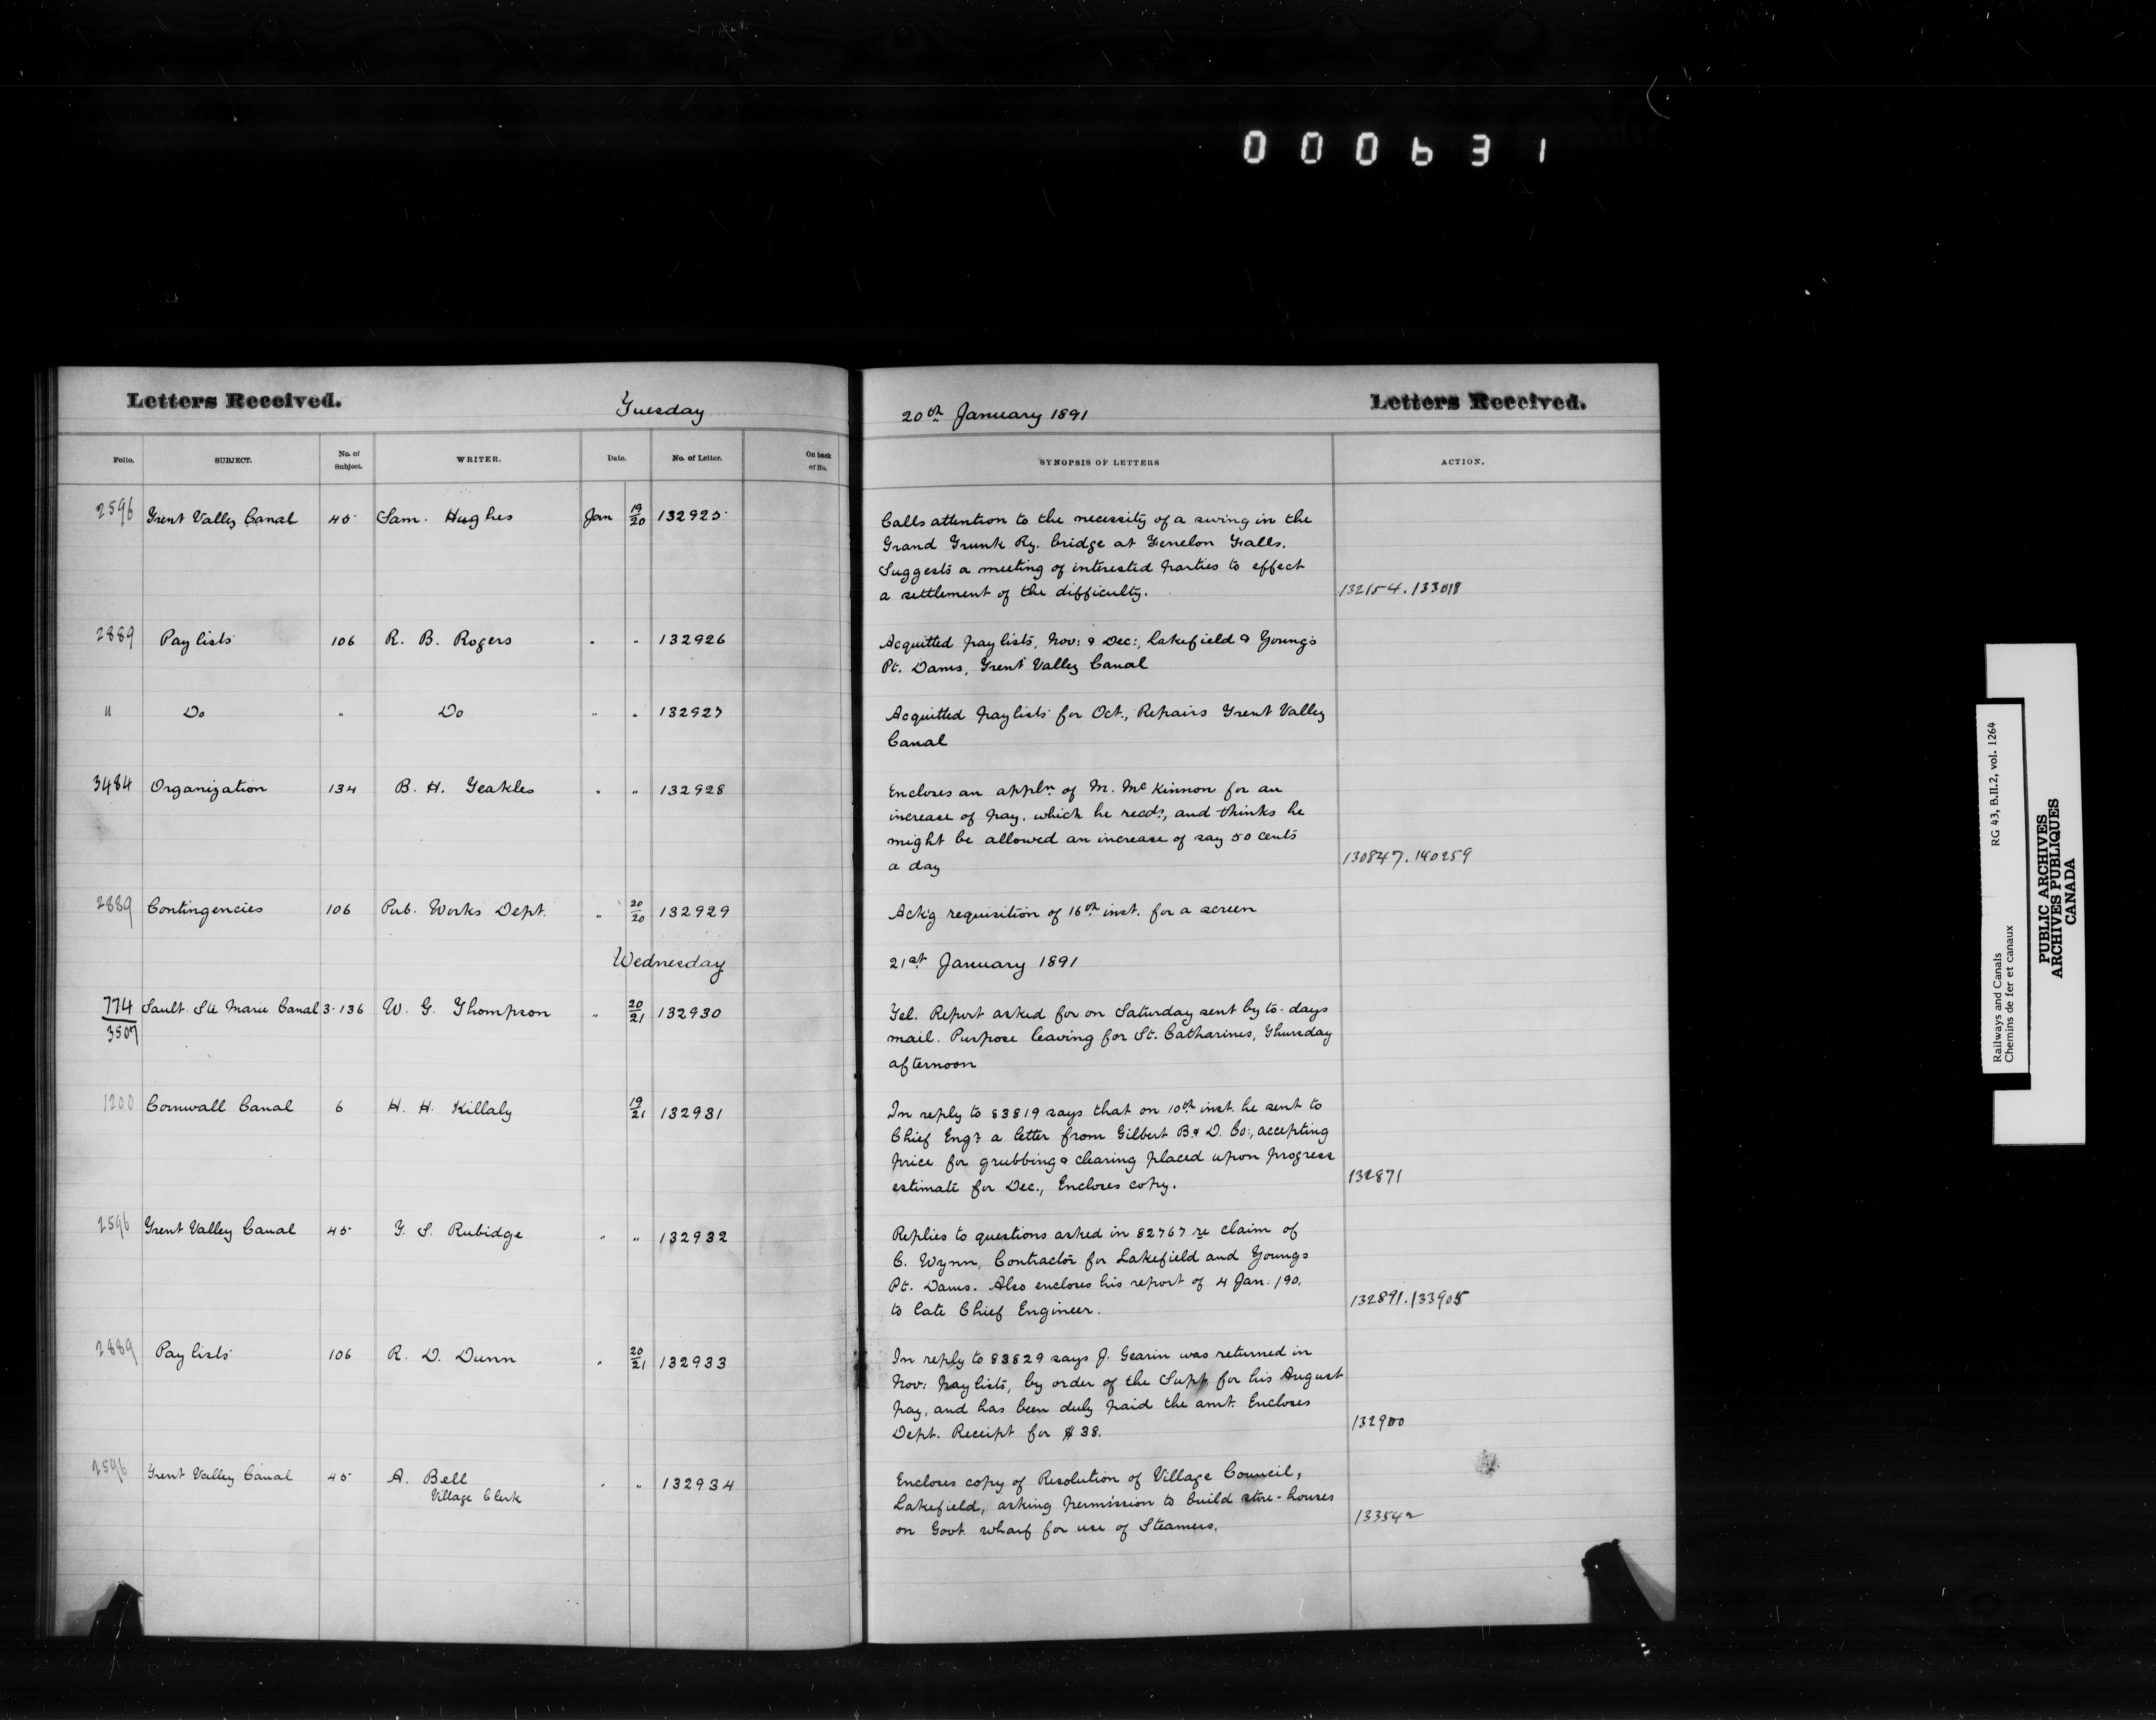 000631
Letters Received.
Tuesday
20th January 1891
Letters Received.
Folio. SUBJECT. No. of Subject. WRITER. Date. No. of Letter. On back of No. SYNOPSIS OF LETTERS ACTION.
2596 Trent Valley Canal 45 Sam. Hughes Jan 19/20 132925 Calls attention to the necessity of a swing in the
Grand Trunk Ry. bridge at Fenelon Falls.
Suggests a meeting of interested parties to effect
a settlement of the difficulty. 132154. 133018
2889 Pay lists 106 R. B. Rogers " " 132926 Acquitted pay lists, Nov: & Dec:, Lakefield & Young's
Pt. Dams, Trent Valley Canal
" Do " Do " " 132927 Acquitted pay lists for Oct., Repairs Trent Valley
Canal
3484 Organization 134 B. H. Teakles " " 132928 Encloses an appln of M. McKinnon for an
increase of pay, which he recds, and thinks he
might be allowed an increase of say 50 cents
a day 130847. 140259
2889 Contingencies 106 Pub. Works Dept. " 20/20 132929 Ack'g requisition of 16th inst. for a screen
Wednesday 21st January 1891
774/3507 Sault Ste Marie Canal 3-136 W. G. Thompson " 20/21 132930 Tel. Report asked for on Saturday sent by to-days
mail. Purpose leaving for St. Catharines, Thursday
afternoon
1200 Cornwall Canal 6 H. H. Killaly 19/21 132931 In reply to 83819 says that on 10th inst. he sent to
Chief Engr a letter from Gilbert B. & D. Co:, accepting
price for grubbing & clearing placed upon progress
estimate for Dec., Encloses copy. 132871
2596 Trent Valley Canal 45 T. S. Rubidge " " 132932 Replies to questions asked in 82767 re claim of
C. Wynn, Contractor for Lakefield and Youngs
Pt. Dams. Also encloses his report of 4 Jan: '90,
to late Chief Engineer. 132891. 133905
2889 Pay lists 106 R. D. Dunn " 20/21 132933 In reply to 83829 says J. Gearin was returned in
Nov: pay lists, by order of the Supt for his August
pay, and has been duly paid the amt. Encloses
Dept. Receipt for $38. 132900
2596 Trent Valley Canal 45 A. Bell " " 132934 Encloses copy of Resolution of Village Council,
Village Clerk
Lakefield, asking permission to build store-houses
on Govt wharf for use of Steamers. 133542
Railways and Canals RG 43, B.II.2, vol. 1264
Chemins de fer et canaux
PUBLIC ARCHIVES
ARCHIVES PUBLIQUES
CANADA